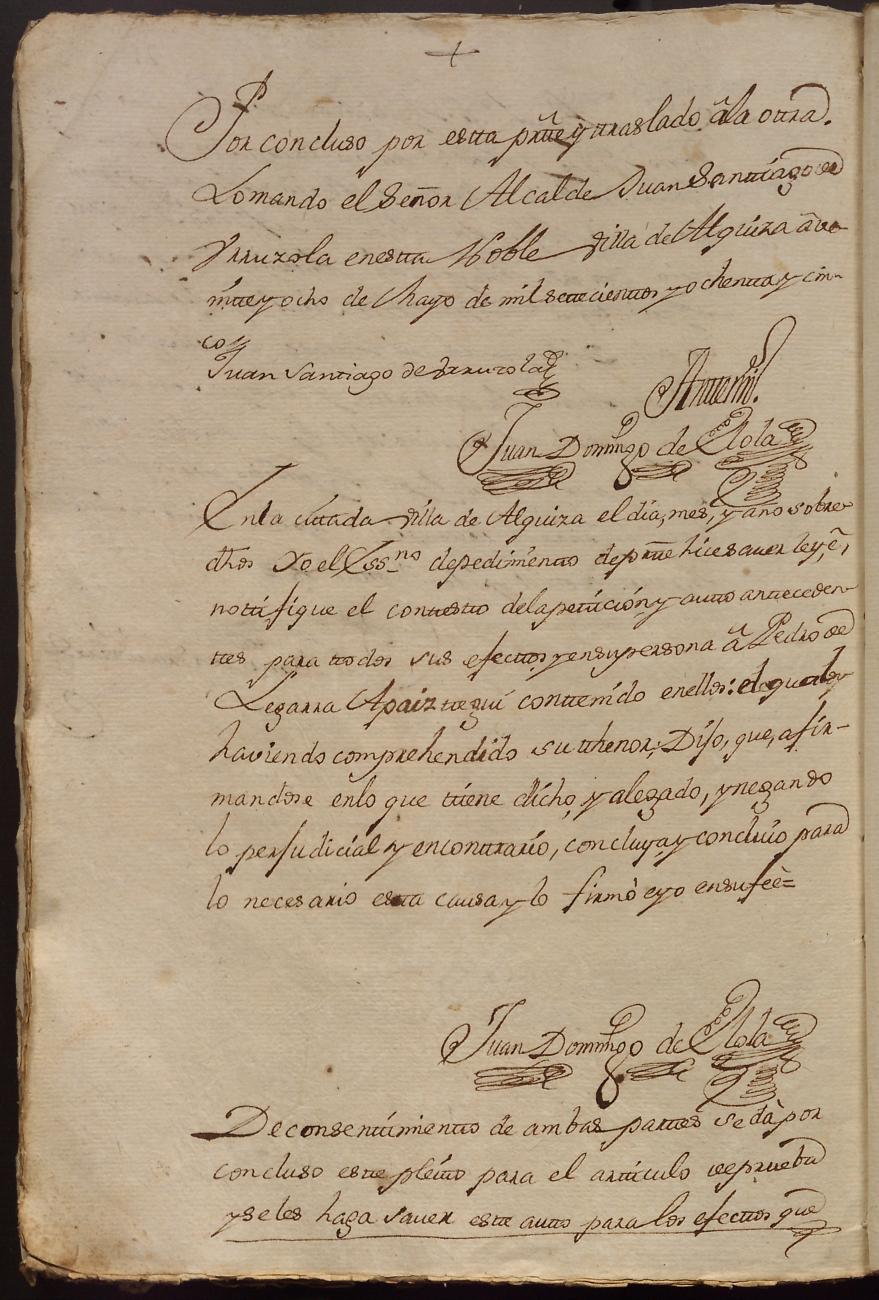 +
Por concluso por estta prtte y traslado â la ottra.
Lo mando el Señor Alcalde Juan Santtiago de
Yrruzola en estta Noble Villa de Alquiza â ve-
intte y ocho de Mayo de mil settecienttos y ochentta y cin-
co//
Juan Santiago de Yrruzola
Antte mi.
Juan Domingo de Elola
En la cittada Villa de Alquiza el dia, mes, y año sobre
dhos Yo el Essno de pedimentto de prtte hice saver ley, ê,
nottifique el conttestto de la petticion y autto antteceden-
ttes para ttodos sus efecttos y en su persona â Pedro de
Legarra Apaizttegui conttenido en ellos: el qual
haviendo comprehendido su tthenor; Dijo, que, afir-
mandose en lo que ttiene dicho, y alegado, y negando
lo perjudicial y en conttrario, concluya, y concluio para
lo necesario estta causa y lo firmò e yo en su feè=
Juan Domingo de Elola
De consenttimientto de ambas parttes se dà por
concluso estte pleitto para el artticulo de prueba
y se les haga saver estte autto para los efecttos que